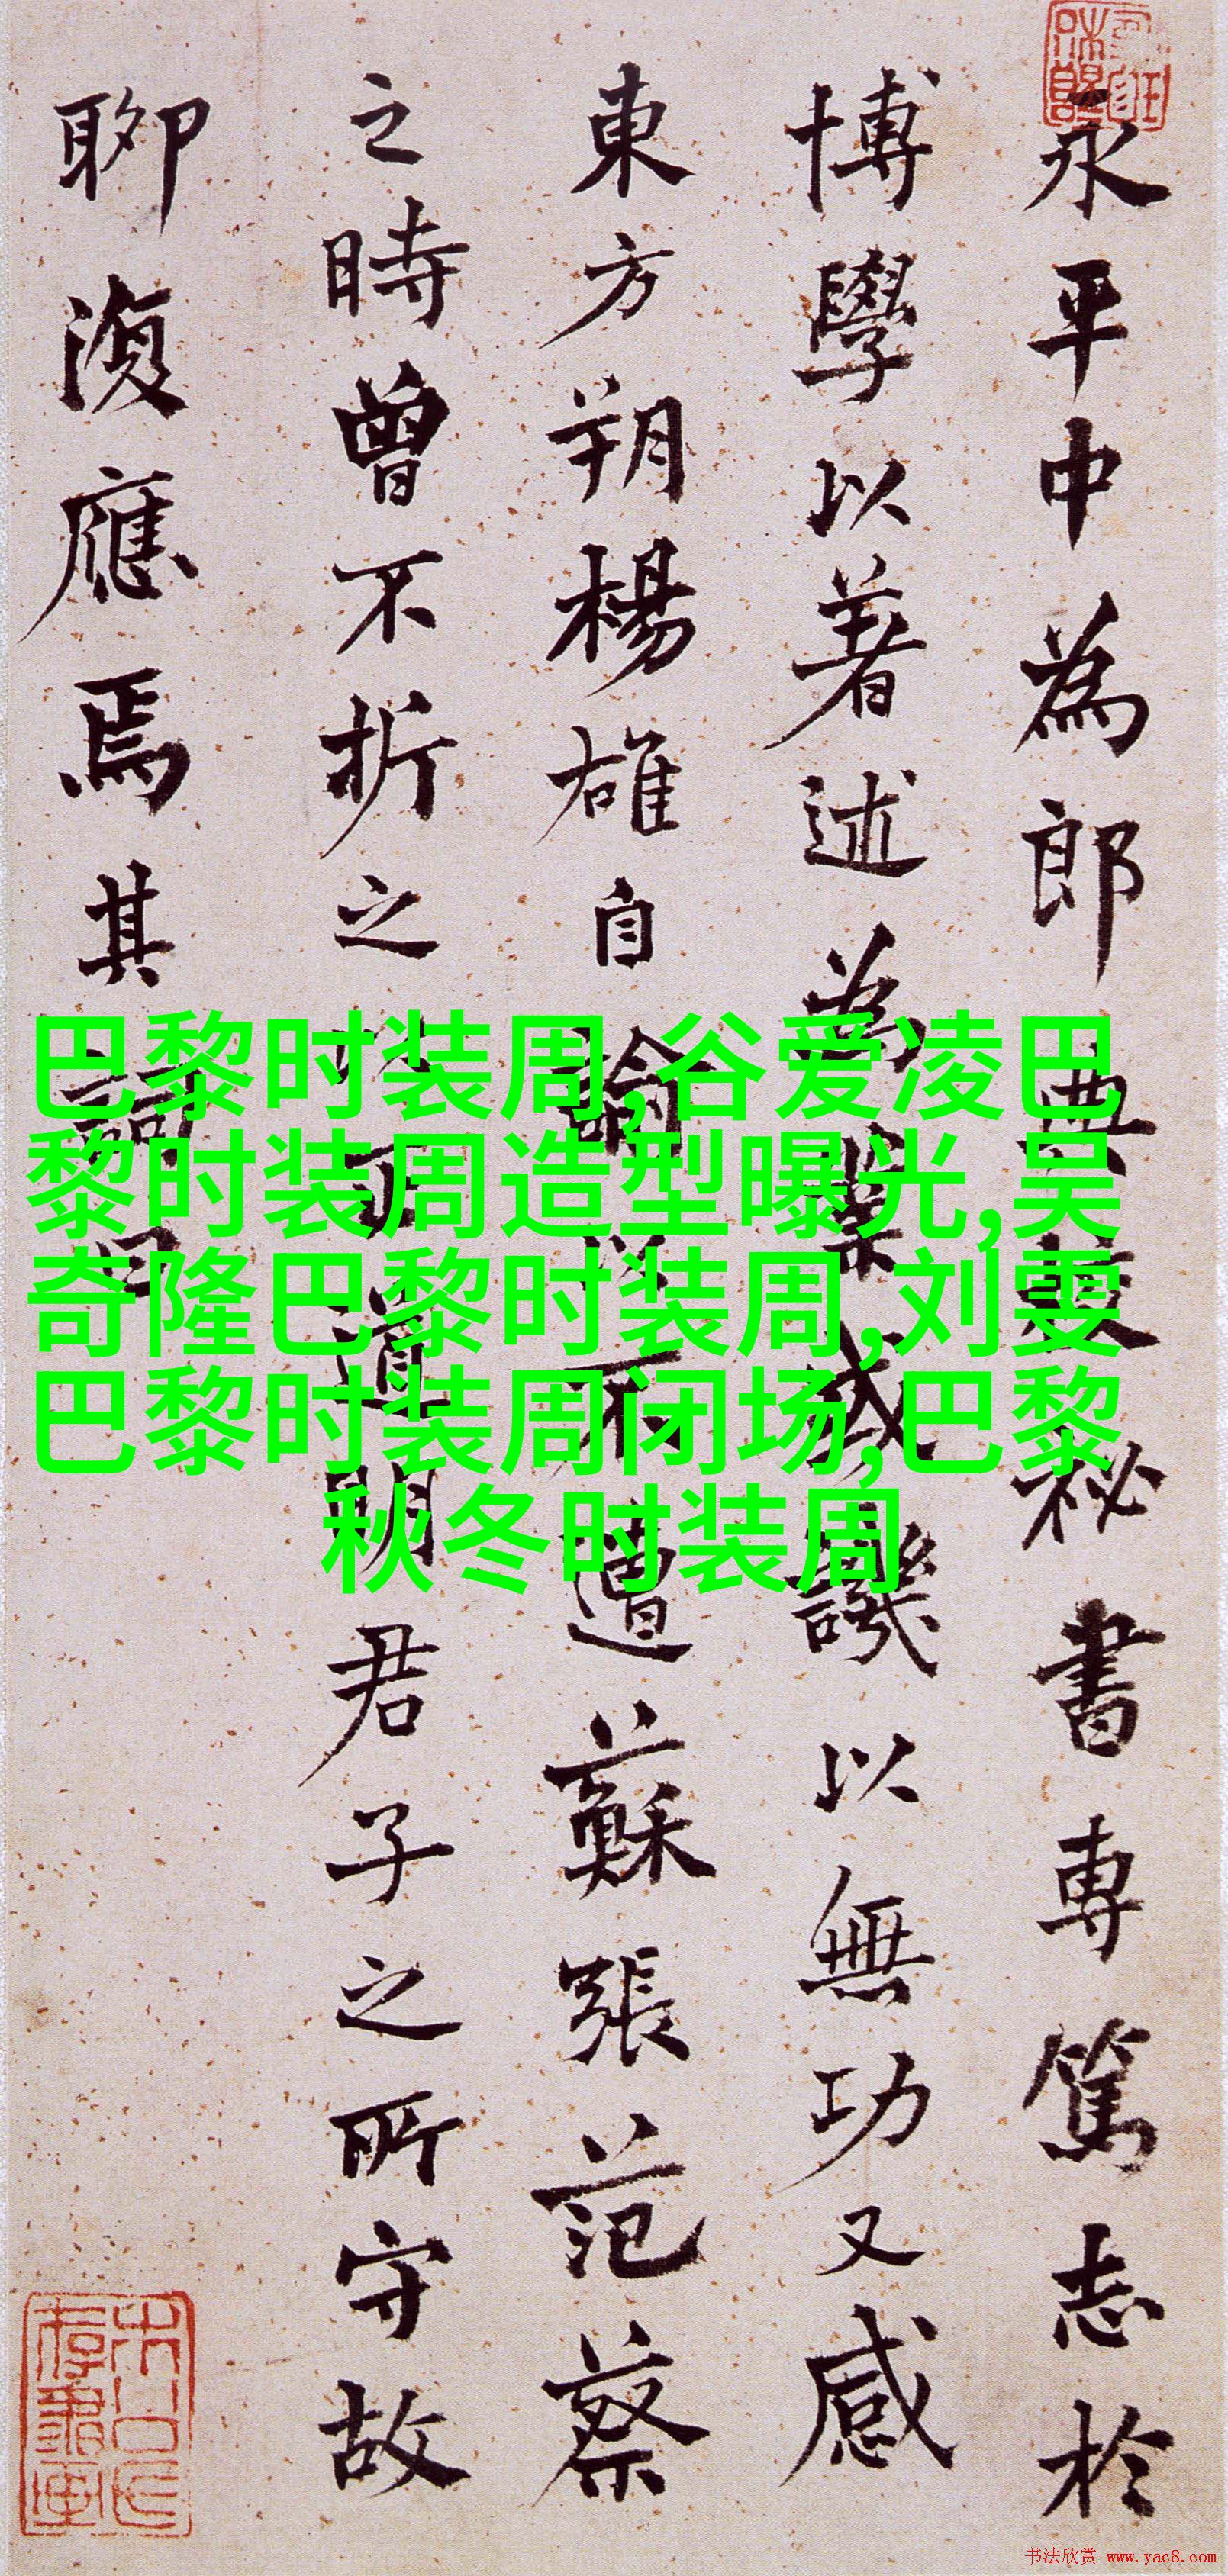 永平中為郎典校秘書專篤志於
博學以著述為業或譏以無功又感
東方朔楊雄自論以不遭蘇張范蔡
之時曾不折之以正道明君子之所守故
聊復應焉其詞曰
巴黎时装周,谷爱凌巴
黎时装周造型曝光,吴
奇隆巴黎时装周,刘雯
巴黎时装周闭场,巴黎
秋冬时装周
书法欣赏 www.yac8.com